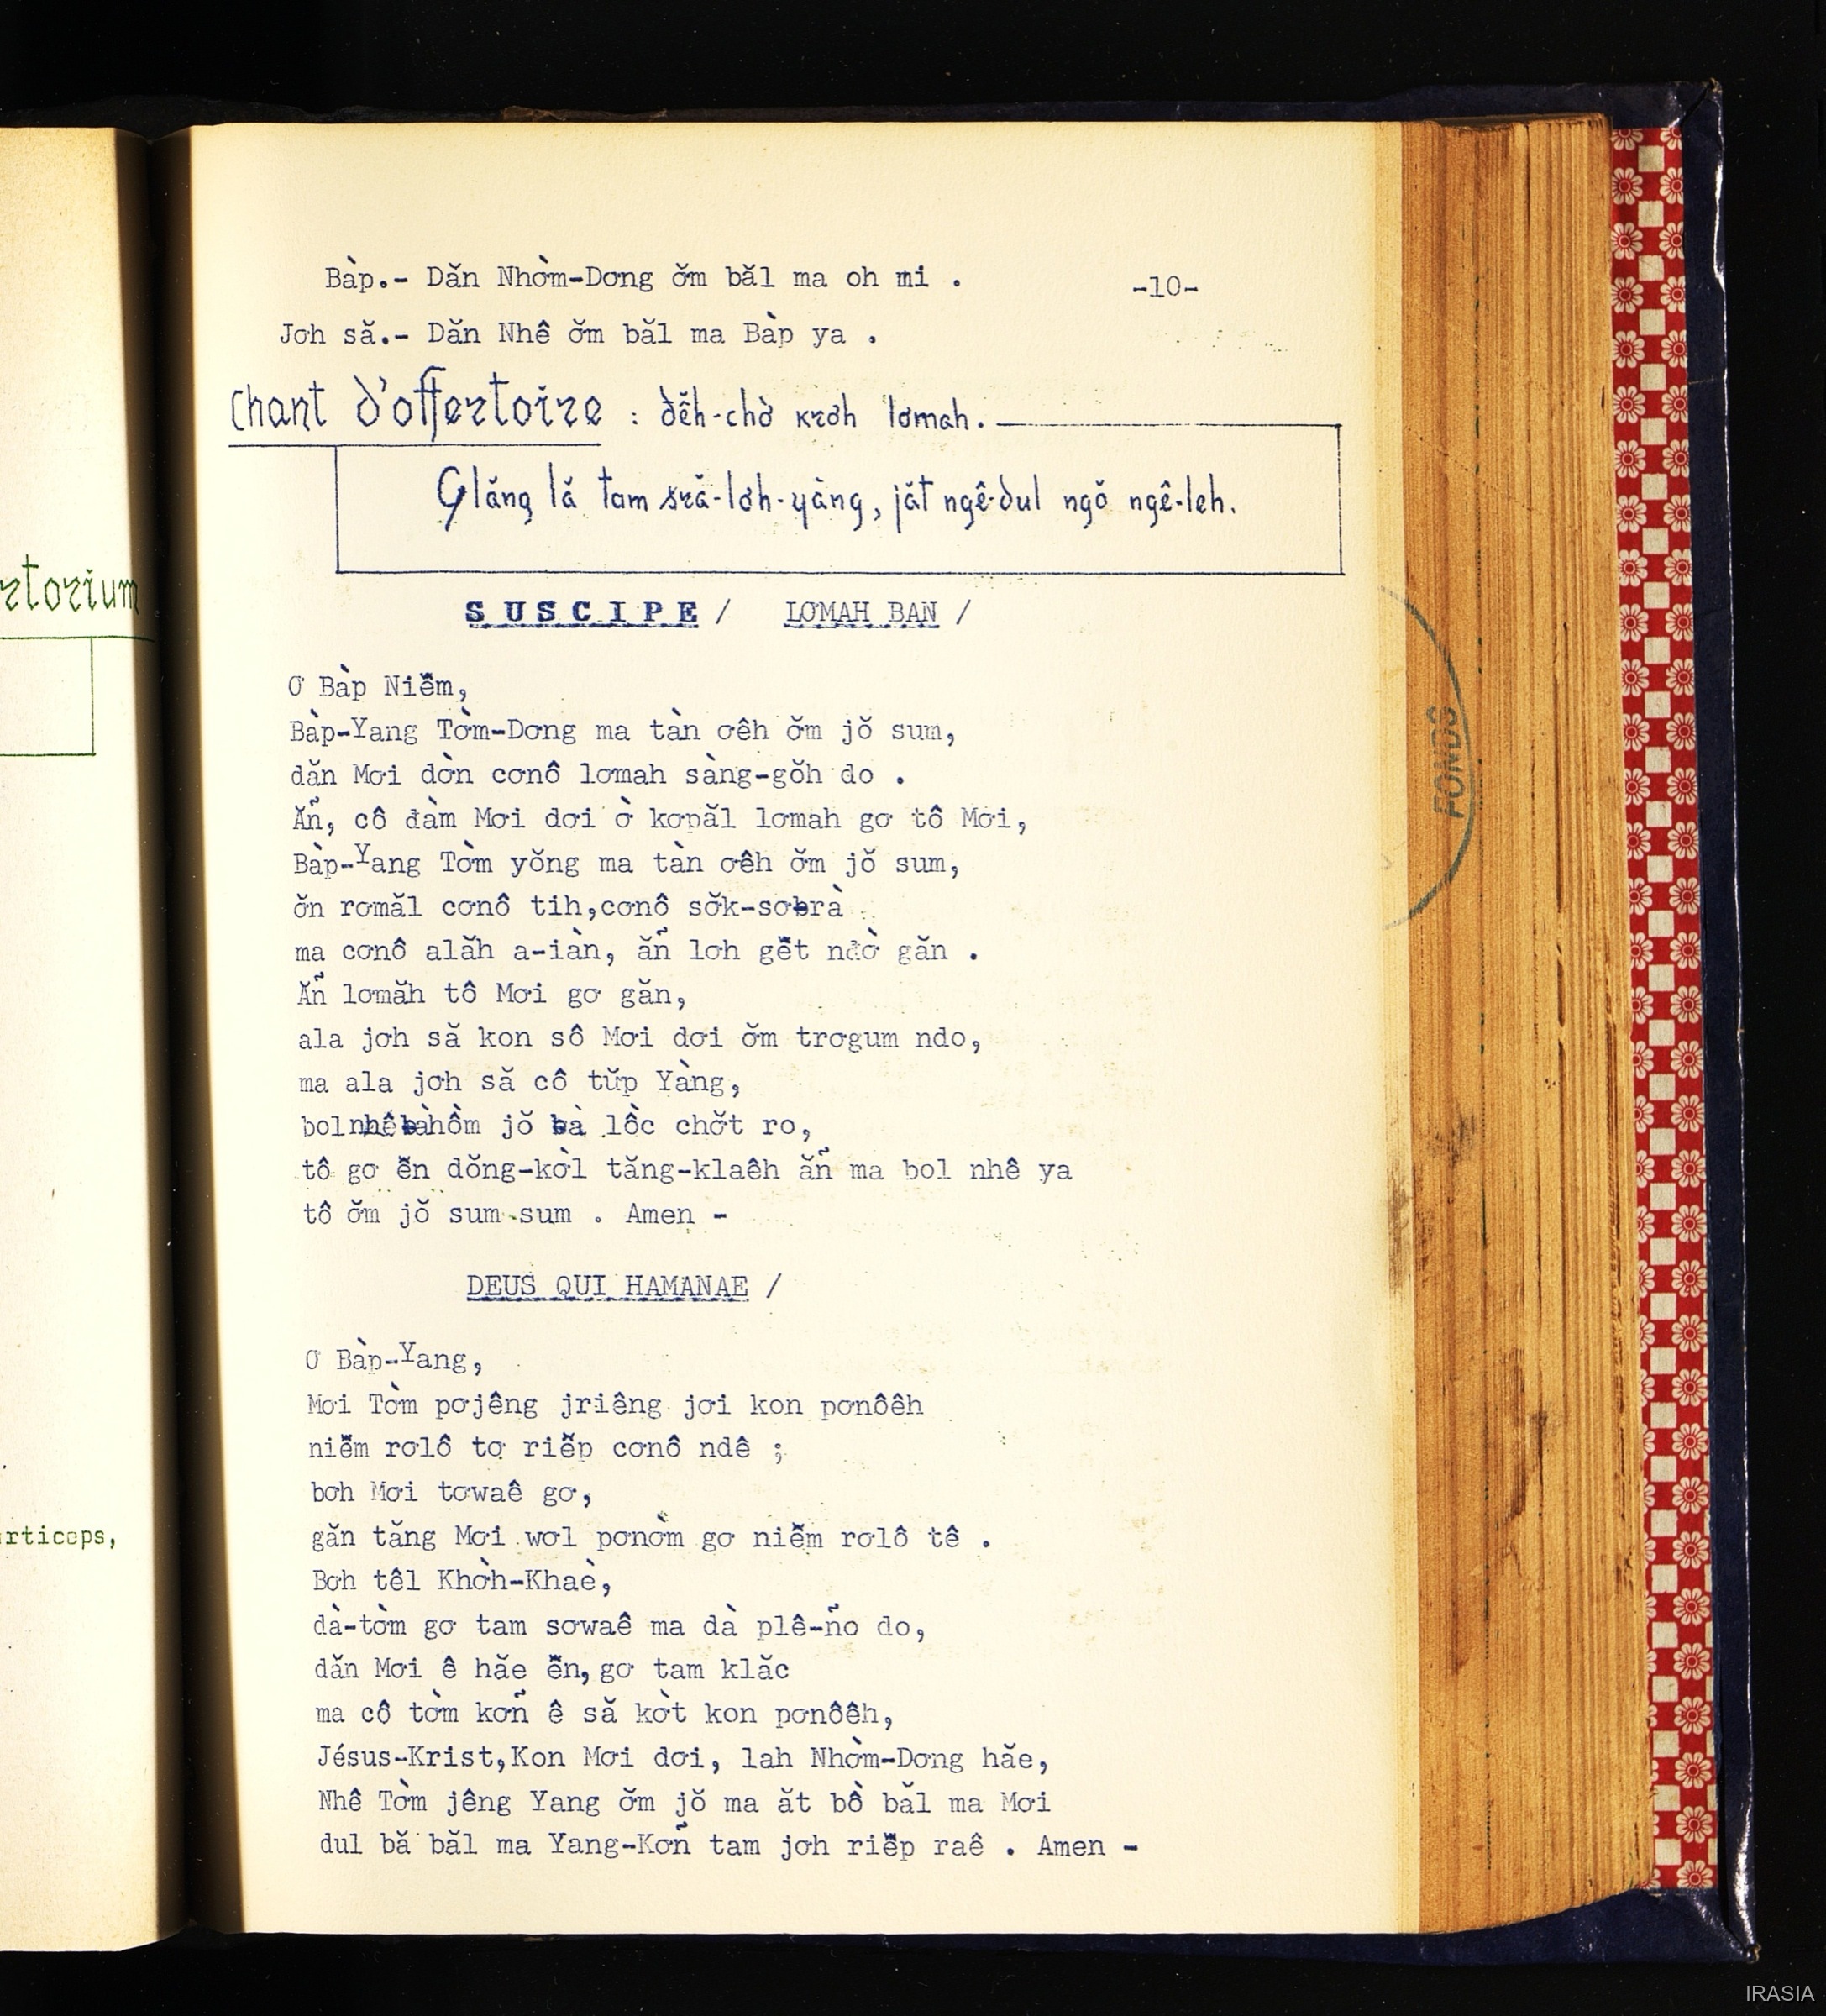 Bàp.- Dăn Nhờm-Dơng ơ̆m băl ma oh mi .
-10-
Jơh să.- Dăn Nhê ơ̆m băl ma Bàp ya .
Chant d'offertoire : dê̆h-chờ krơh lơmah.
Glăng lă tam sră-lơh-yàng, jăt ngê-dul ngŏ ngê-leh.
SUSCIPE / LƠMAH BAN /
Ơ Bàp Niê̆m,
Bàp-Yang Tờm-Dơng ma tàn ơêh ơ̆m jŏ sum,
dăn Mơi dờn cơnô lơmah sàng-gŏh do .
Ăñ, cô đàm Mơi dơi ờ kơpăl lơmah gơ tô Mơi,
Bàp-Yang Tờm yŏng ma tàn ơêh ơ̆m jŏ sum,
ơ̆n rơmăl cơnô tih,cơnô sơ̆k-sơbrà
ma cơnô alăh a-iàn, ăñ lơh gê̆t ndờ găn .
Ăñ lơmăh tô Mơi gơ găn,
ala jơh să kon sô Mơi dơi ơ̆m trơgum ndo,
ma ala jơh să cô tŭp Yàng,
bol nhê hồm jŏ bà lồc chơ̆t ro,
tô gơ ê̆n dŏng-kờl tăng-klaêh ăñ ma bol nhê ya
tô ơ̆m jŏ sum-sum . Amen -
DEUS QUI HAMANAE /
Ơ Bàp-Yang,
Mơi Tờm pơjêng jriêng jơi kon pơnôêh
niê̆m rơlô tơ riê̆p cơnô ndê ;
bơh Mơi tơwaê gơ,
găn tăng Mơi wơl pơnờm gơ niê̆m rơlô tê .
Bơh têl Khờh-Khaè,
dà-tờm gơ tam sơwaê ma dà plê-ño do,
dăn Mơi ê hăe ê̆n, gơ tam klăc
ma cô tờm kơñ ê să kờt kon pơnôêh,
Jésus-Krist,Kon Mơi dơi, lah Nhờm-Dơng hăe,
Nhê Tờm jêng Yang ơ̆m jŏ ma ăt bồ băl ma Mơi
dul bă băl ma Yang-Kơñ tam jơh riê̆p raê . Amen -
rtorium
rticeps,
FONDS
IRASIA